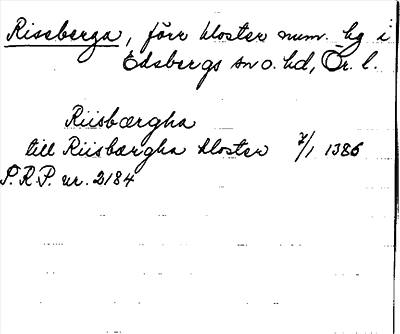 Rissberga, förr kloster num. hg i
Edsbergs sn o. hd, Ör. l.
Riisbærgha
till Riisbærgha kloster 7/1 1386
P.R.P. nr. 2184